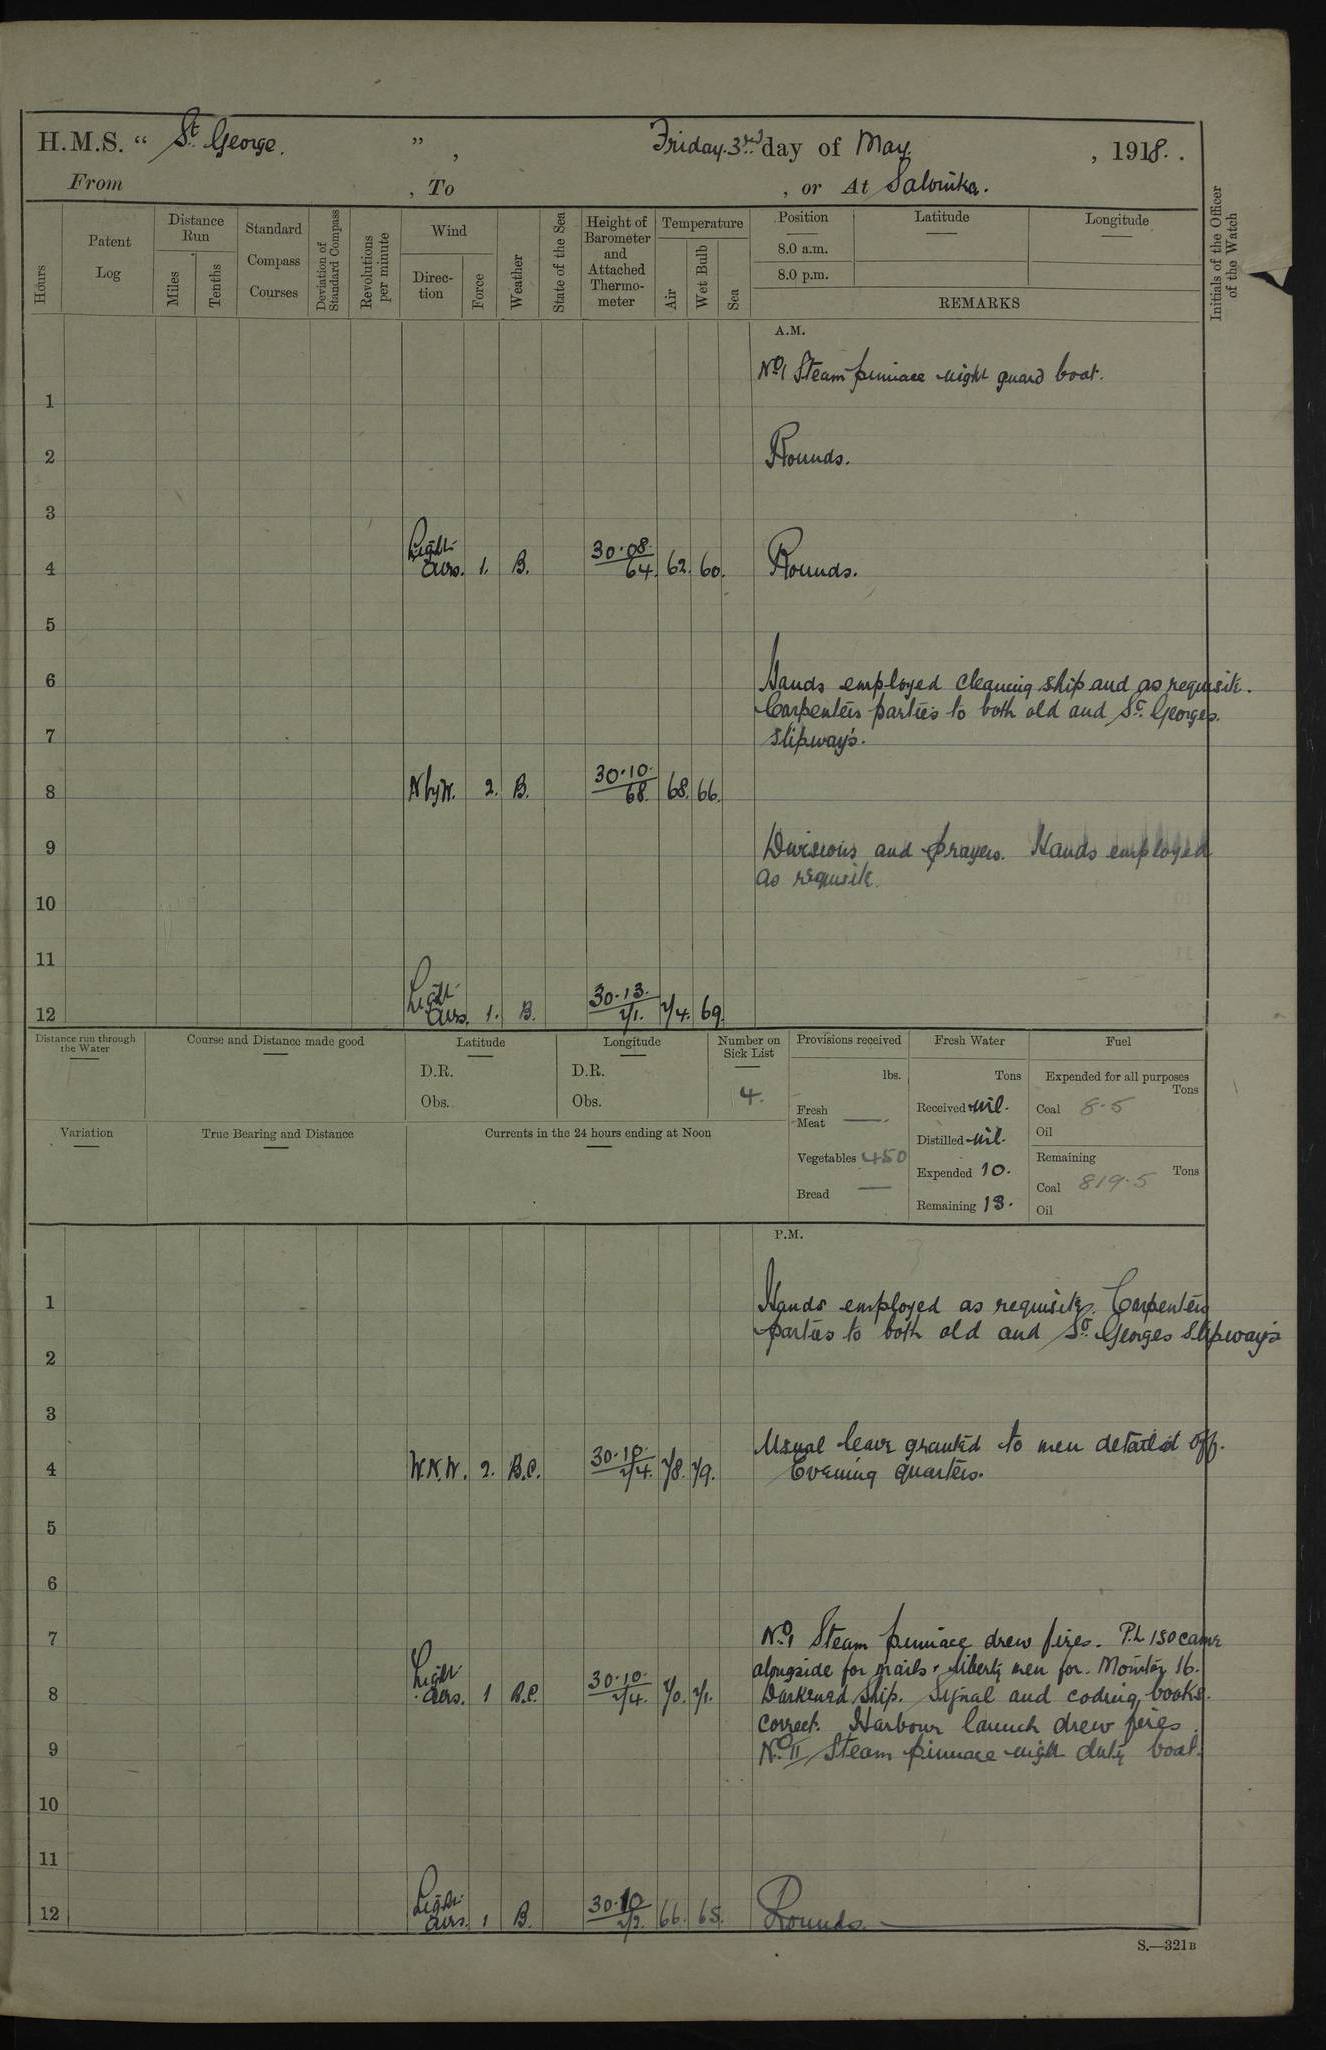 H.M.S. “ St. George. ” , Friday. 3rd day of May. , 1918. .
From , To , or At Salonika.
Hours
Patent Log
Distance Run
Miles
Tenths
Standard Compass Courses
Deviation of Standard Compass
Revolutions per minute
Wind
Direc-tion
Force
Weather
State of the Sea
Height of Barometer and Attached Thermo-meter
Temperature
Air
Wet Bulb
Sea
Position
8.0 a.m.
8.0 p.m.
Latitude
Longitude
REMARKS
Initials of the Officer of the Watch
A.M.
No. 1 Steam pinnace night guard boat.
1
2 Rounds.
3
4 Light airs. 1. B. 30.08. 64. 62. 60. Rounds.
5
6 Hands employed cleaning ship and as requisite.
Carpenters parties to both old and St. Georges.
7 slipway's.
8 N by W. 2. B. 30.10. 68. 68. 66.
9 Divisions and prayers. Hands employed
as requisite.
10
11
12 Light airs. 1. B. 30.13. 71. 74. 69.
Distance run through the Water
Course and Distance made good
Latitude
D.R.
Obs.
Longitude
D.R.
Obs.
Number on Sick List
4.
Provisions received
lbs.
Fresh Meat —
Vegetables 450
Bread —
Fresh Water
Tons
Received nil.
Distilled nil.
Expended 10.
Remaining 13.
Fuel
Expended for all purposes
Tons
Coal 8.5
Oil
Remaining
Tons
Coal 819.5
Oil
Variation
True Bearing and Distance
Currents in the 24 hours ending at Noon
P.M.
1 Hands employed as requisite. Carpenters
parties to both old and St. Georges slipway's
2
3
Usual leave granted to men detailed off.
4 W.N.W. 2. B.C. 74. 78. 79. Evening quarters.
5
6
7 No. 1 Steam pinnace drew fires. P.L 150 came
alongside for mails & liberty men for Monitor 16.
8 Light airs. 1 B.C. 30.10. 74. 70. 71. Darkened ship. Signal and coding books.
correct. Harbour launch drew fires
9 No. II Steam pinnace night duty boat.
10
11
12 Light airs. 1 B. 30.10 72. 66. 65. Rounds.
S.—321B